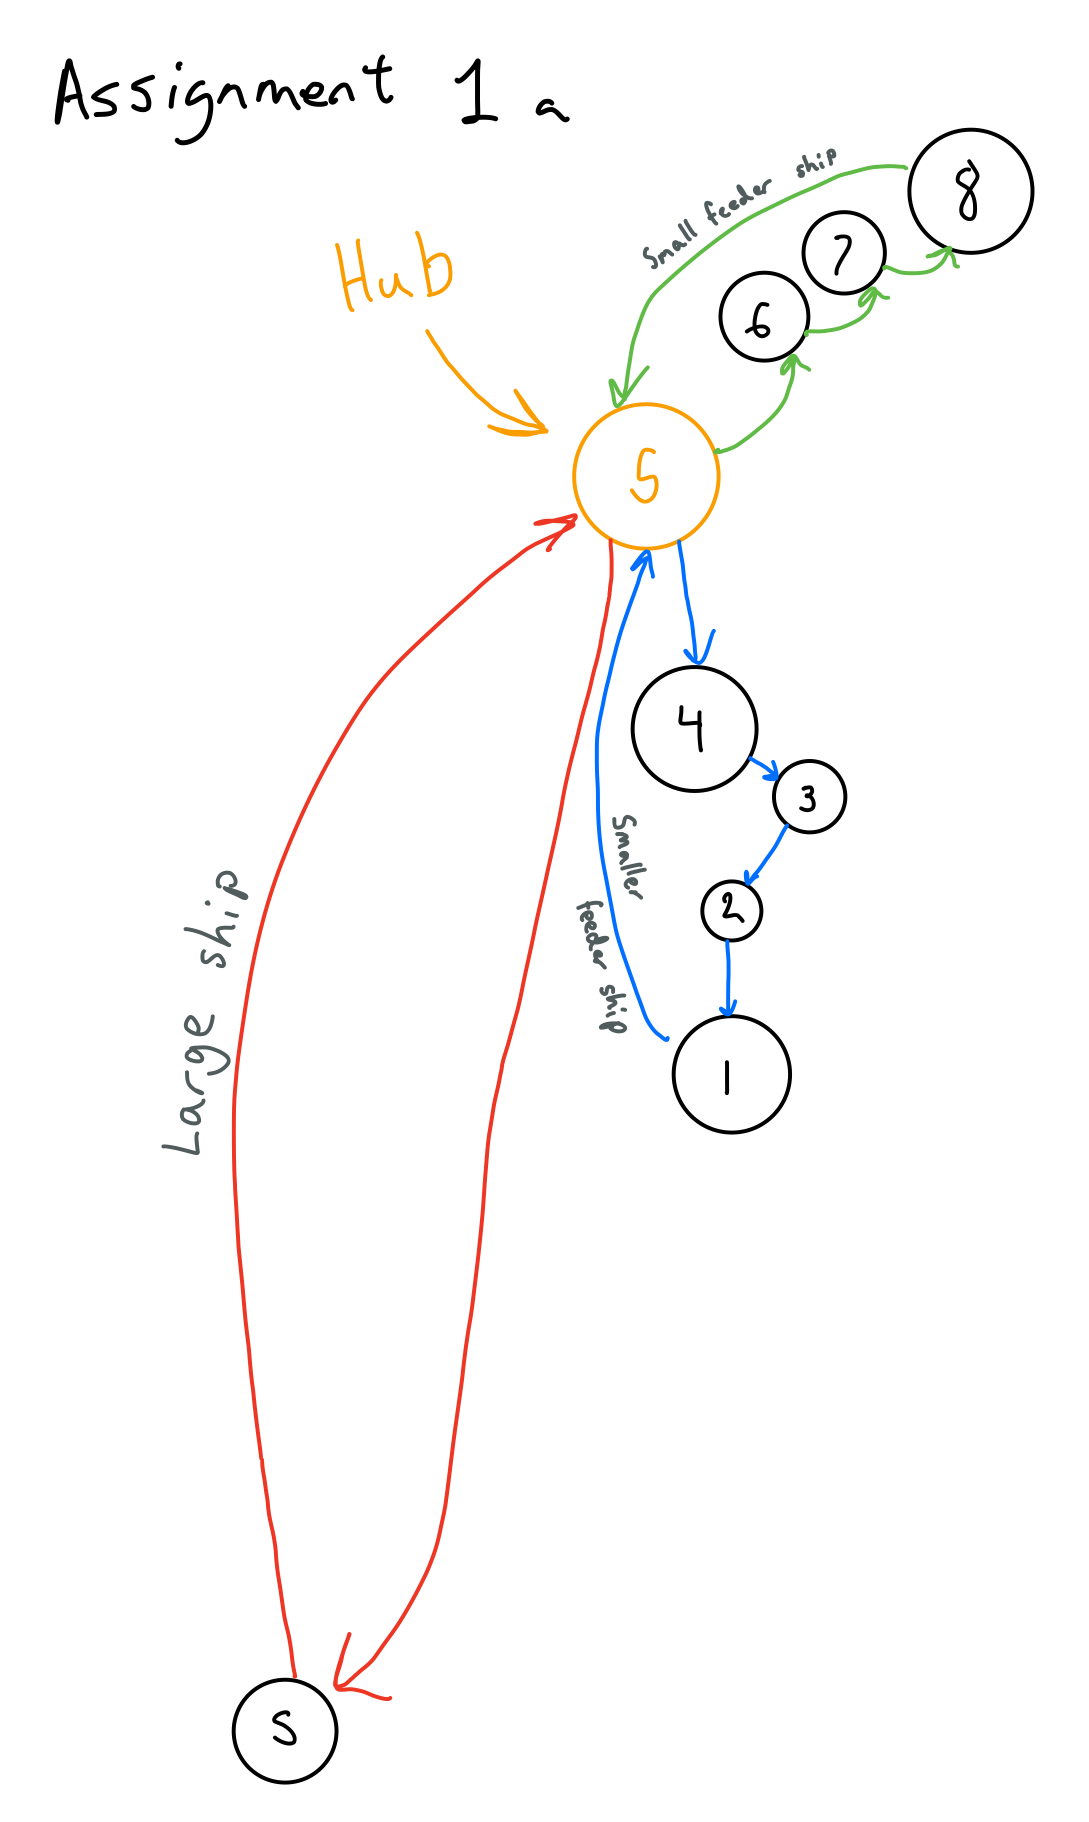 Assignment 1a
Small feeder ship
8
7
Hub
6
5
4
3
Smaller
feeder ship
2
Large ship
1
S